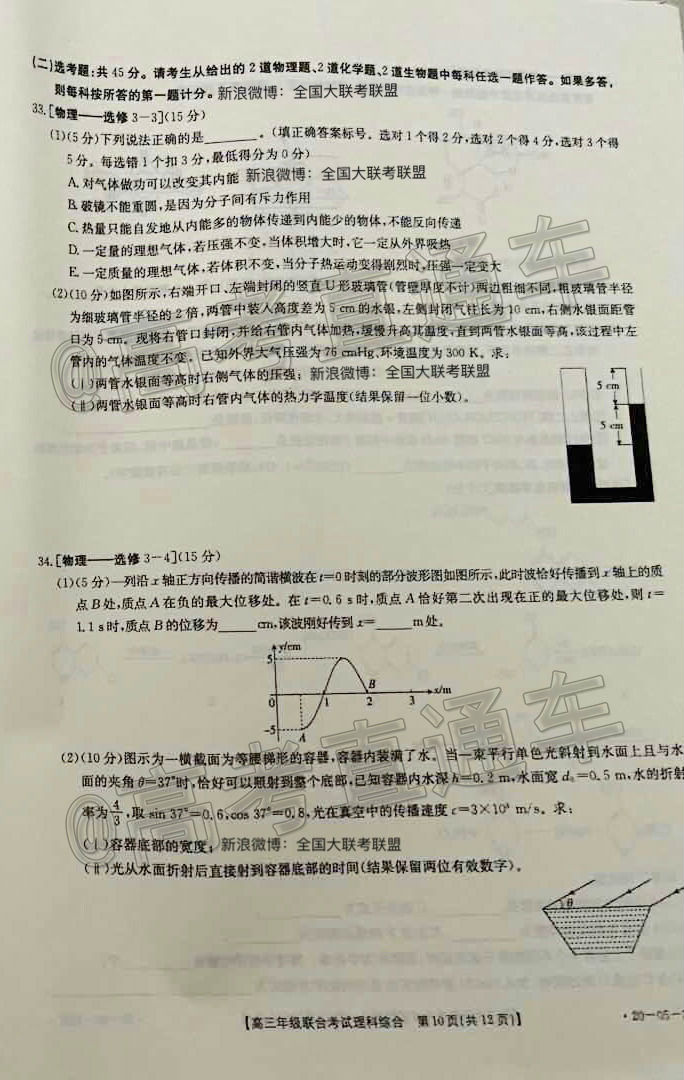 (二)选考题:共 45 分。请考生从给出的 2 道物理题、2 道化学题、2 道生物题中每科任选一题作答。如果多答,
则每科按所答的第一题计分。新浪微博：全国大联考联盟
33.[物理——选修 3-3](15 分)
(1)(5 分)下列说法正确的是______。(填正确答案标号。选对 1 个得 2 分,选对 2 个得 4 分,选对 3 个得
5 分。每选错 1 个扣 3 分,最低得分为 0 分)
A.对气体做功可以改变其内能 新浪微博：全国大联考联盟
B.破镜不能重圆,是因为分子间有斥力作用
C.热量只能自发地从内能多的物体传递到内能少的物体,不能反向传递
D.一定量的理想气体,若压强不变,当体积增大时,它一定从外界吸热
E.一定质量的理想气体,若体积不变,当分子热运动变得剧烈时,压强一定变大
(2)(10 分)如图所示,右端开口、左端封闭的竖直 U 形玻璃管(管壁厚度不计)两边粗细不同,粗玻璃管半径
为细玻璃管半径的 2 倍,两管中装入高度差为 5 cm 的水银,左侧封闭气柱长为 10 cm,右侧水银面距管
口为 5 cm。现将右管口封闭,并给右管内气体加热,缓慢升高其温度,直到两管水银面等高,该过程中左
管内的气体温度不变。已知外界大气压强为 76 cmHg,环境温度为 300 K。求:
(ⅰ)两管水银面等高时右侧气体的压强; 新浪微博：全国大联考联盟
(ⅱ)两管水银面等高时右管内气体的热力学温度(结果保留一位小数)。
5 cm
5 cm
34.[物理——选修 3-4](15 分)
(1)(5 分)一列沿 x 轴正方向传播的简谐横波在 t=0 时刻的部分波形图如图所示,此时波恰好传播到 x 轴上的质
点 B 处,质点 A 在负的最大位移处。在 t=0.6 s 时,质点 A 恰好第二次出现在正的最大位移处,则 t=
1.1 s 时,质点 B 的位移为______cm,该波刚好传到 x=______m 处。
y/cm
5
B
x/m
0 1 2 3
-5
A
(2)(10 分)图示为一横截面为等腰梯形的容器,容器内装满了水。当一束平行单色光斜射到水面上且与水
面的夹角 θ=37°时,恰好可以照射到整个底部,已知容器内水深 h=0.2 m,水面宽 d₀=0.5 m,水的折射
率为4/3,取 sin 37°=0.6,cos 37°=0.8,光在真空中的传播速度 c=3×10⁸ m/s。求:
(ⅰ)容器底部的宽度; 新浪微博：全国大联考联盟
(ⅱ)光从水面折射后直接射到容器底部的时间(结果保留两位有效数字)。
θ
【高三年级联合考试理科综合 第 10 页(共 12 页)】
@高考直通车
@高考直通车